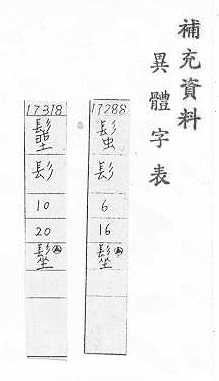 補充資料
異體字表
17288
髟
6
16
髽
17318
髟
10
20
髽